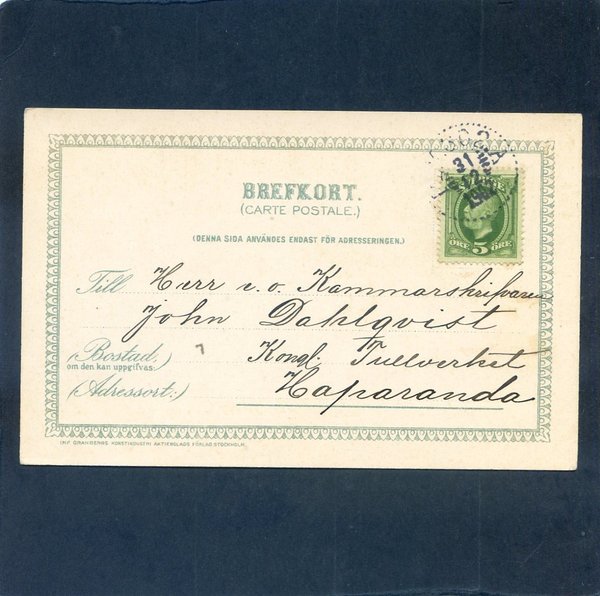 BREFKORT.
(CARTE POSTALE.)
(DENNA SIDA ANVÄNDES ENDAST FÖR ADRESSERINGEN.)
ÖRE 5 ÖRE
31
12
Till Herr e. o. Kammarskrifvaren
John Dahlqvist
(Bostad, Kongl. Tullverket
om den kan uppgifvas:
(Adressort:) Haparanda
IMP. GRANBERGS KONSTINDUSTRI AKTIEBOLAGS FÖRLAG STOCKHOLM.